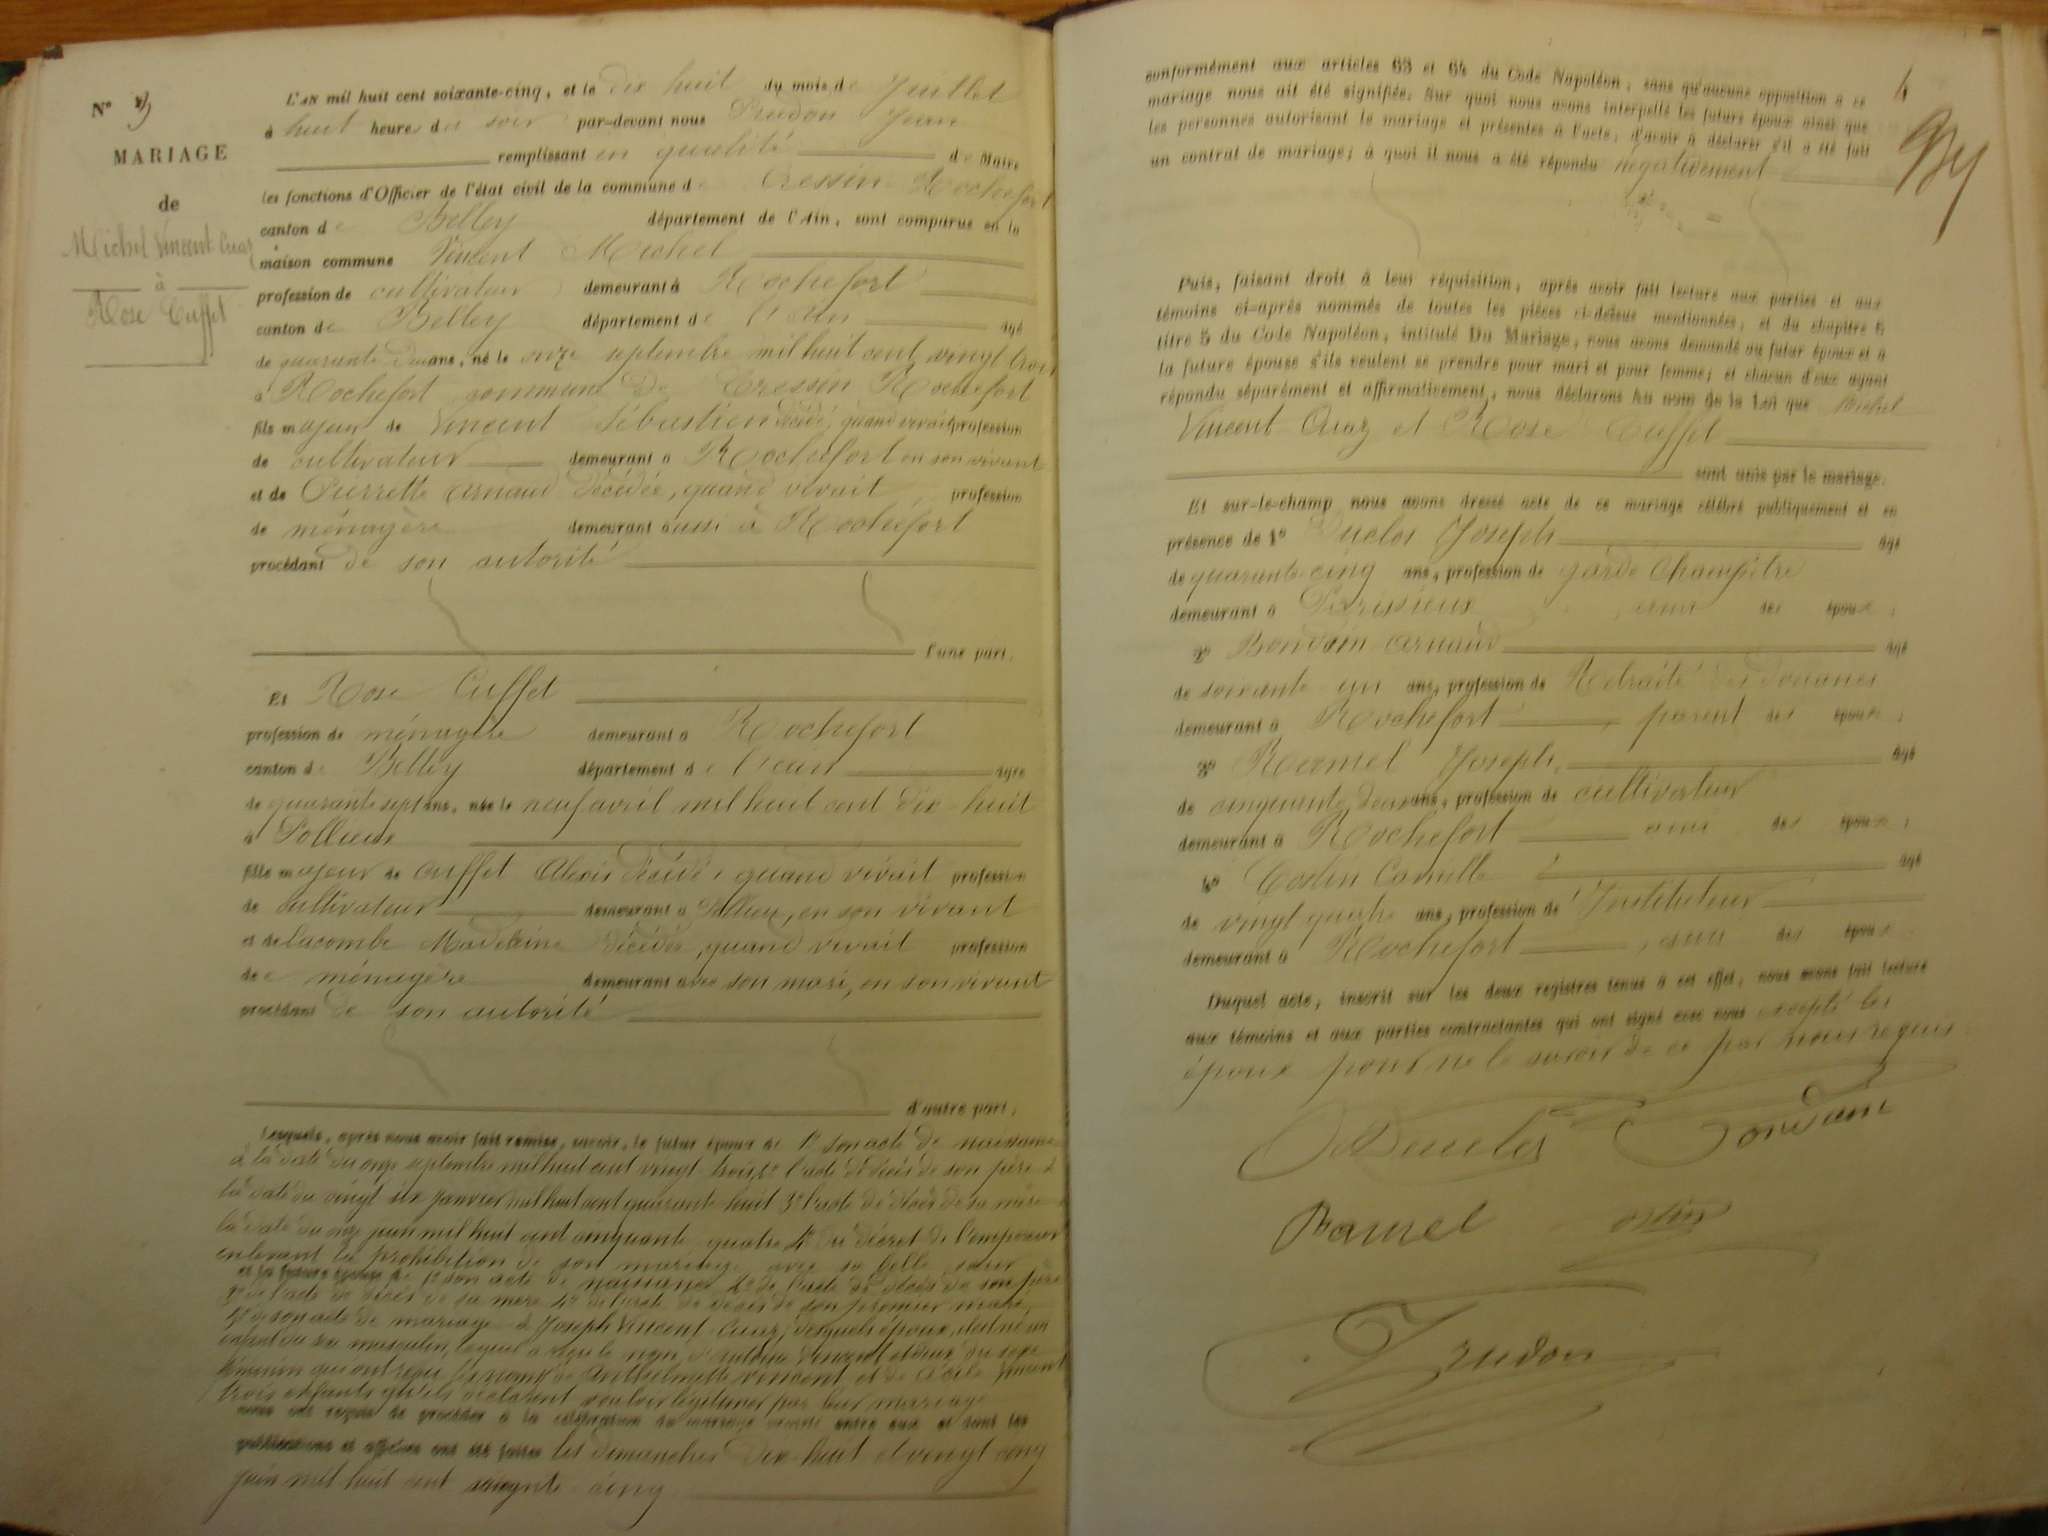 N° 3
MARIAGE
de
Michel Vincent Cuaz
à
Rose Cuffet
L'AN mil huit cent soixante-cinq, et le dix huit du mois de Juillet
à huit heures du soir par-devant nous Prudon Jean
remplissant en qualité de Maire
les fonctions d'Officier de l'état civil de la commune de Cressin Rochefort
canton de Belley département de l'Ain, sont comparus en la
maison commune Vincent Michel
profession de cultivateur demeurant à Rochefort
canton de Belley département de l'ain âgé
de quarante deux ans, né le onze septembre mil huit cent vingt trois
à Rochefort commune de Cressin Rochefort
fils majeur de Vincent Sébastien décédé, quand vivait profession
de cultivateur demeurant à Rochefort en son vivant
et de Pierrette arnaud décédée, quand vivait profession
de ménagère demeurant aussi à Rochefort
procédant de son autorité
l'une part.
Et Rose Cuffet
profession de ménagère demeurant à Rochefort
canton de Belley département de l'ain âgée
de quarante sept ans, née le neuf avril mil huit cent dix-huit
à Pollieux
fille majeur de Cuffet Alexis décédé quand vivait profession
de cultivateur demeurant à Pollieu, en son vivant
et de lacombe Madeleine décédée, quand vivait profession
de ménagère demeurant avec son mari, en son vivant
procédant de son autorité
d'autre part.
Lesquels, après nous avoir fait remise, savoir, le futur époux de 1° son acte de naissance
à la date du onze septembre mil huit cent vingt trois, 2° l'acte de décès de son père à
la date du vingt six Janvier mil huit cent quarante huit 3° l'acte de décès de sa mère à
la date du onze juin mil huit cent cinquante quatre 4° du décret de l'empereur
enlevant la prohibition de son mariage avec sa belle sœur
et la future épouse de 1° son acte de naissance 2° de l'acte de décès de son père
3° de l'acte de décès de sa mère 4° de l'acte de décès de son premier mari,
5° de son acte de mariage à Joseph Vincent Cuaz; desquels époux, est né un
enfant du sexe masculin, lequel a reçu le nom d'antoine Vincent et deux du sexe
féminin qui ont reçu les noms de Anthelmette Vincent et de Cécile Vincent
trois enfants qu'ils déclarent vouloir légitimer par leur mariage
nous ont requis de procéder à la célébration du mariage projeté entre eux et dont les
publications et affiches ont été faites les dimanches dix-huit et vingt cinq
juin mil huit cent soixante cinq
conformément aux articles 63 et 64 du Code Napoléon, sans qu'aucune opposition à ce
mariage nous ait été signifiée. Sur quoi nous avons interpellé les futurs époux ainsi que
les personnes autorisant le mariage et présentes à l'acte, d'avoir à déclarer s'il a été fait
un contrat de mariage; à quoi il nous a été répondu négativement
Puis, faisant droit à leur réquisition, après avoir fait lecture aux parties et aux
témoins ci-après nommés de toutes les pièces ci-dessus mentionnées, et du chapitre 6
titre 5 du Code Napoléon, intitulé Du Mariage, nous avons demandé au futur époux et à
la future épouse s'ils veulent se prendre pour mari et pour femme; et chacun d'eux ayant
répondu séparément et affirmativement, nous déclarons au nom de la Loi que Michel
Vincent Cuaz et Rose Cuffet
sont unis par le mariage.
Et sur-le-champ nous avons dressé acte de ce mariage célébré publiquement et en
présence de 1° Duclos Joseph âgé
de quarante-cinq ans, profession de garde Champêtre
demeurant à Parissieux ami des époux;
2° Bondam arnaud âgé
de soixante un ans, profession de Retraité des douanes
demeurant à Rochefort, parent des époux;
3° Ramel Joseph âgé
de cinquante deux ans, profession de cultivateur
demeurant à Rochefort ami des époux;
4° Costin Camille âgé
de vingt quatre ans, profession de Instituteur
demeurant à Rochefort, ami des époux.
Duquel acte, inscrit sur les deux registres tenus à cet effet, nous avons fait lecture
aux témoins et aux parties contractantes qui ont signé avec nous excepté les
époux pour ne le savoir de ce par nous requis
Duclos
Ramel
Prudon